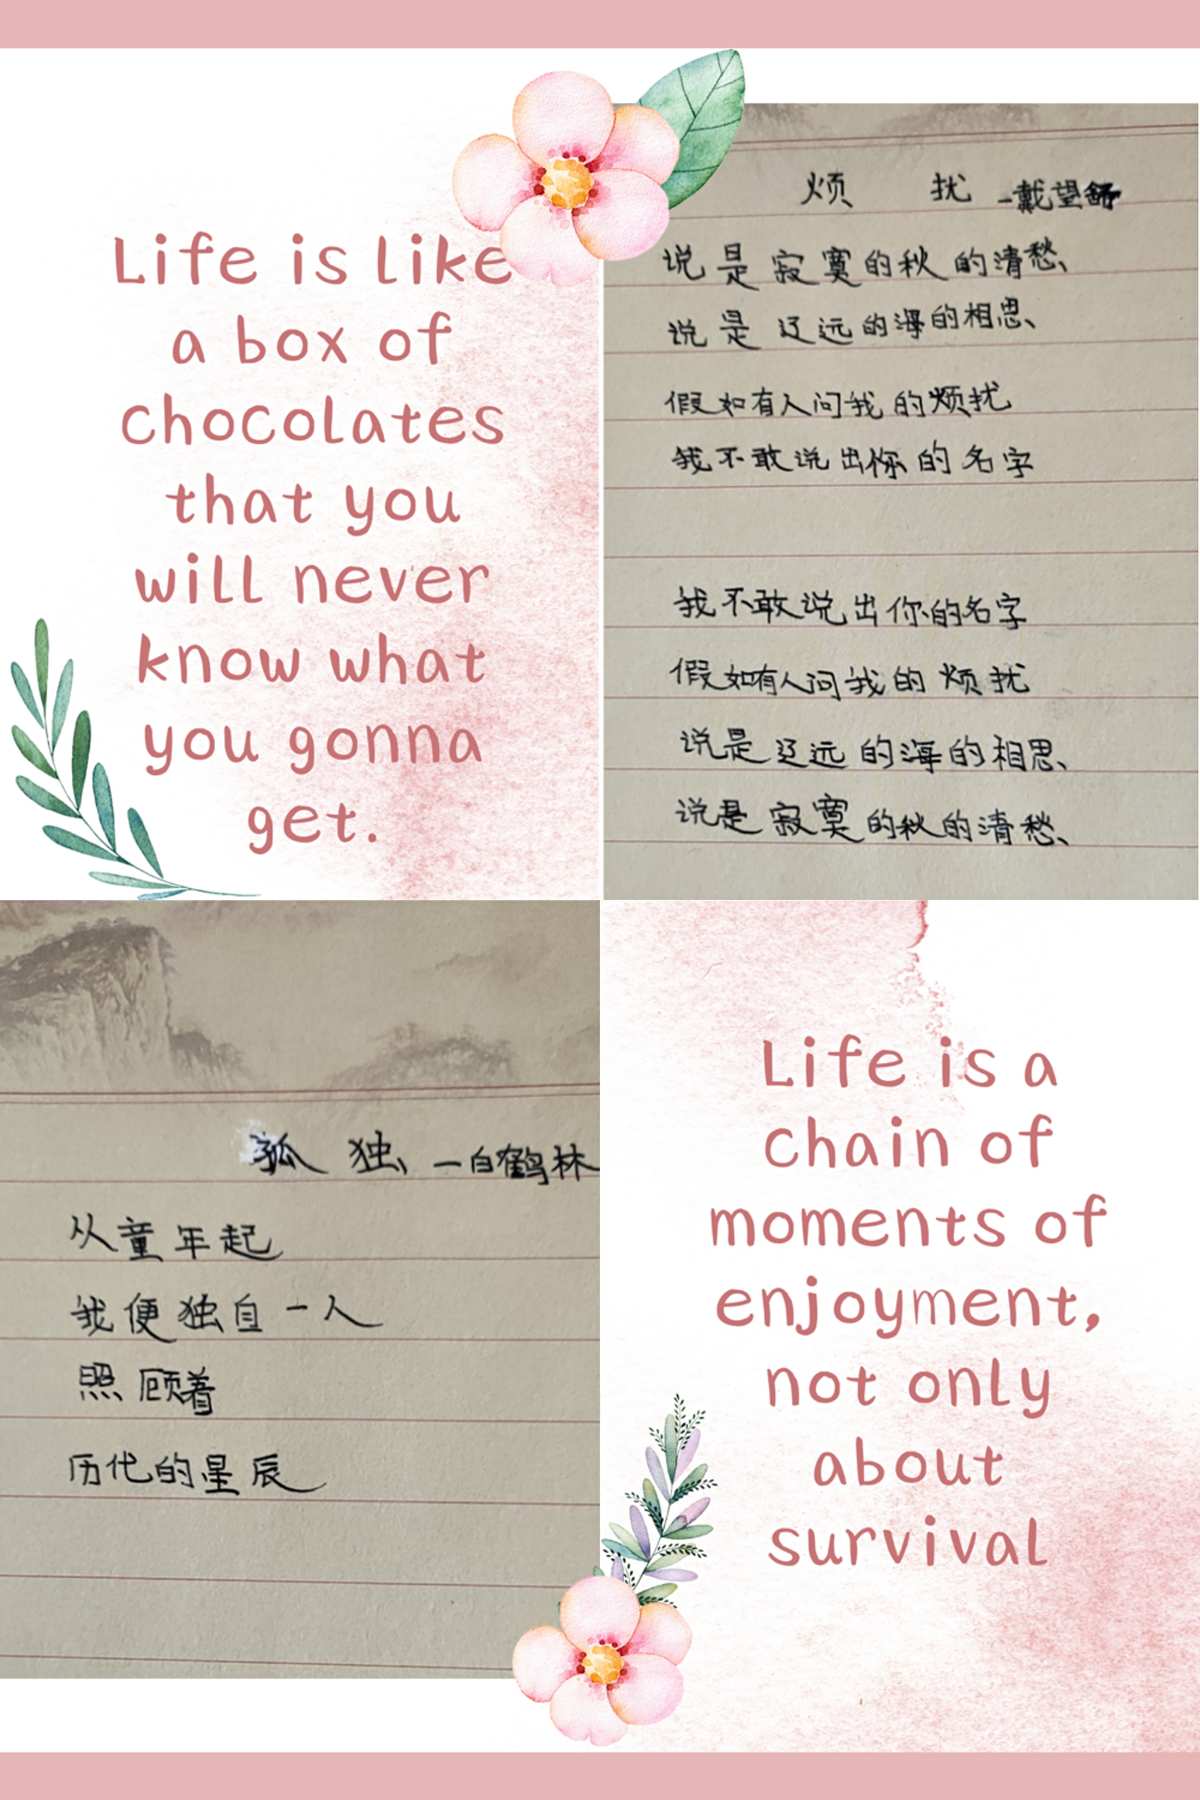 Life is like
a box of
chocolates
that you
will never
know what
you gonna
get.
烦 扰 -戴望舒
说是寂寞的秋的清愁、
说是辽远的海的相思、
假如有人问我的烦扰
我不敢说出你的名字
我不敢说出你的名字
假如有人问我的烦扰
说是辽远的海的相思、
说是寂寞的秋的清愁、
孤独、一白鹤林
从童年起
我便独自一人
照顾着
历代的星辰
Life is a
chain of
moments of
enjoyment,
not only
about
survival